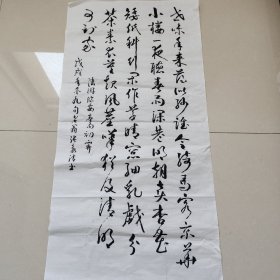 世味年来薄似纱谁令骑马客京華
小楼一夜聽春雨深巷明朝卖杏花
矮纸斜行闲作草晴窗细乳戏分
茶素衣莫起风尘嘆犹及清明
可到家
陆游临安春雨初霁
戊戌年冬九旬老翁张书